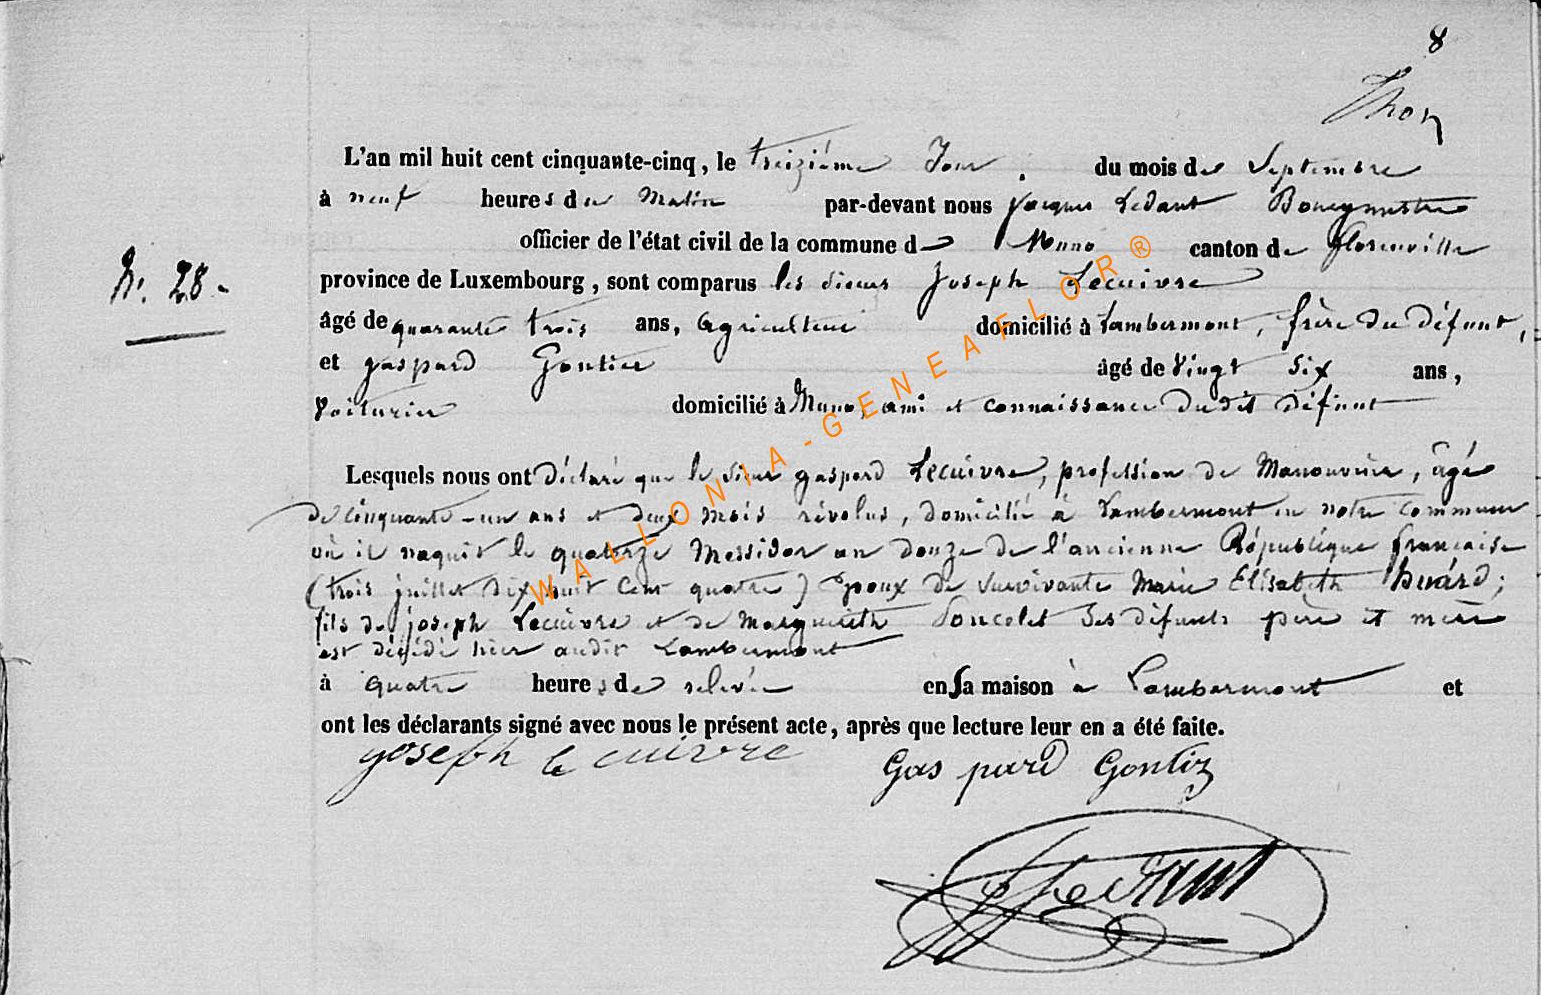 8
Thon
L'an mil huit cent cinquante-cinq, le treizième Jour. du mois de Septembre
à neuf heures du Matin par-devant nous jacques Ledant Bourgmestre
officier de l'état civil de la commune de Muno canton de florenville
N. 28.
province de Luxembourg, sont comparus les sieurs Joseph Lecuivre
âgé de quarante trois ans, agriculteur domicilié à Lambermont, frère du défunt,
et gaspard Gontier âgé de Vingt Six ans,
Voiturier domicilié à Muno, ami et connaissance dudit défunt
Lesquels nous ont déclaré que le sieur gaspard Lecuivre, profession de Manouvrier, âgé
de cinquante-un ans et deux mois révolus, domicilié à Lambermont en notre commune
où il naquit le quatorze Messidor an douze de l'ancienne République française
(trois juillet dix huit cent quatre) époux de survivante Marie Elisabeth Huard;
fils de joseph Lecuivre et de Marguerith Poncelet ses défunts père et mère
est décédé hier audit Lambermont
à quatre heures de relevée en sa maison à Lambermont et
ont les déclarants signé avec nous le présent acte, après que lecture leur en a été faite.
joseph le cuivre Gaspard Gontier
J Ledant
WALLONIA-GENEAFLOR®